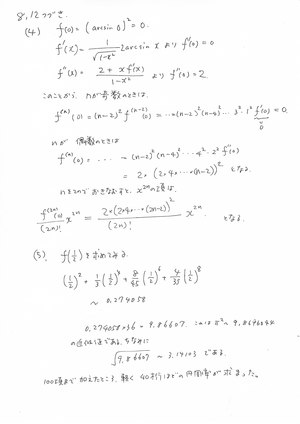 8.12 つづき.
(4) f(0) = (arcsin 0)² = 0.
f'(x) = 1/√(1-x²) 2arcsin x より f'(0) = 0
f''(x) = (2 + x f'(x))/(1-x²) より f''(0) = 2.
このことから, nが奇数のときは,
f⁽ⁿ⁾(0) = (n-2)² f⁽ⁿ⁻²⁾(0) = … = (n-2)²(n-4)² … 3²·1² f'(0) = 0
nが 偶数のときは
f⁽ⁿ⁾(0) = … = (n-2)²(n-4)² … 4²·2² f''(0)
= 2·(2·4·…·(n-2))² となる.
nを2nでおきなおすと, x²ⁿの項は,
f⁽²ⁿ⁾(0)/(2n)! x²ⁿ = 2·(2·4·…·(2n-2))²/(2n)! x²ⁿ となる.
(5). f(1/2)を求めてみる.
(1/2)² + 1/3 (1/2)⁴ + 8/45 (1/2)⁶ + 4/35 (1/2)⁸
~ 0.274058
0.274058×36 = 9.86607. これは π² ~ 9.8696044
の近似値である. すなわち
√9.86607 ~ 3.14103 である.
100項まで加えたところ, 軽く 40桁ほどの円周率が求まった.